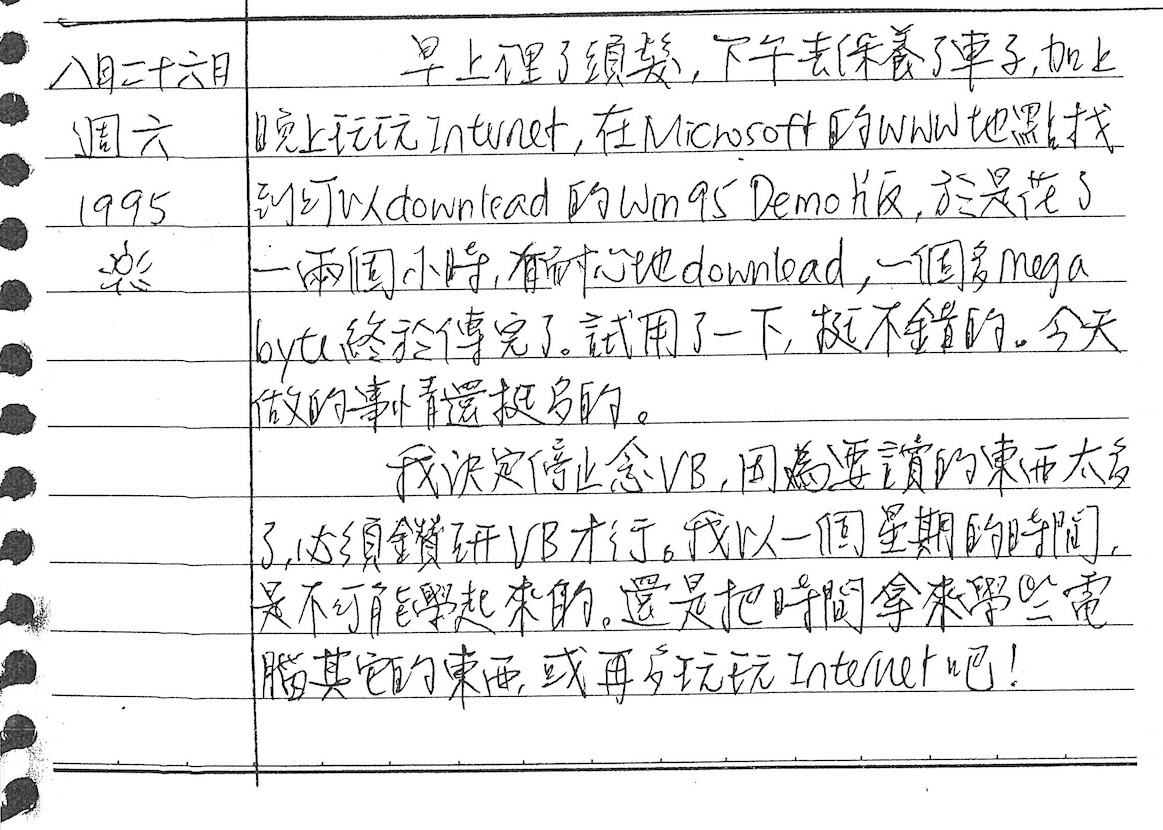 八月二十六日
週六
1995
早上理了頭髮,下午去保養了車子,加上
晚上玩玩Internet,在Microsoft的WWW地點找
到可以download的Win95 Demo版,於是花了
一兩個小時,有耐心地download,一個多mega
byte終於傳完了。試用了一下,挺不錯的。今天
做的事情還挺多的。
我決定停止念VB,因為要讀的東西太多
了,必須鑽研VB才行。我以一個星期的時間,
是不可能學起來的。還是把時間拿來學些電
腦其它的東西,或再多玩玩Internet吧!